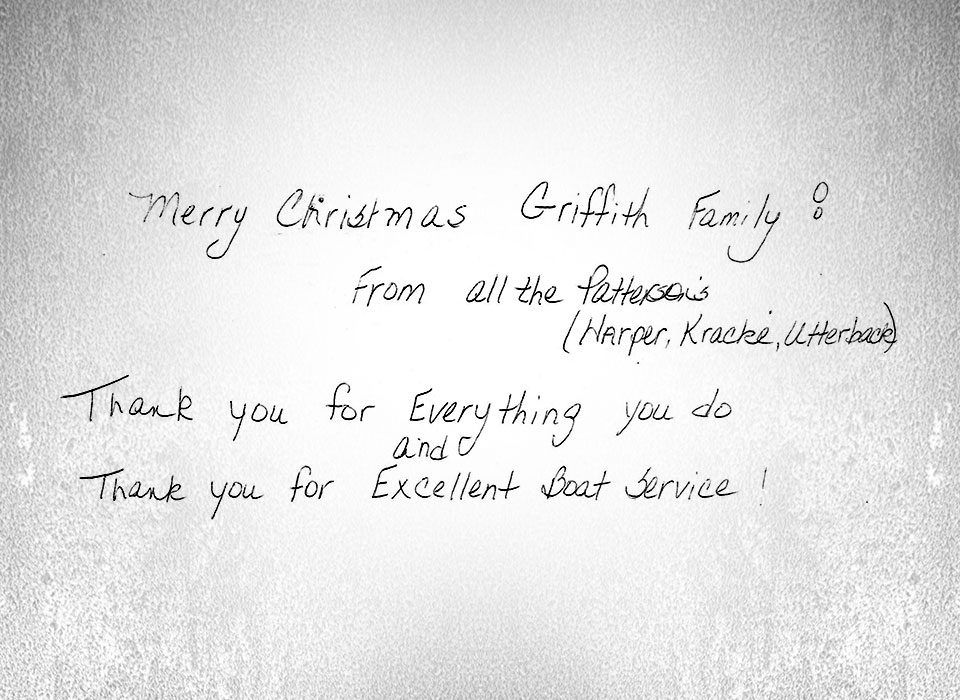 Merry Christmas Griffith Family :
From all the Patterson's
(Harper, Kracke, Utterback)
Thank you for Everything you do
and
Thank you for Excellent Boat Service !